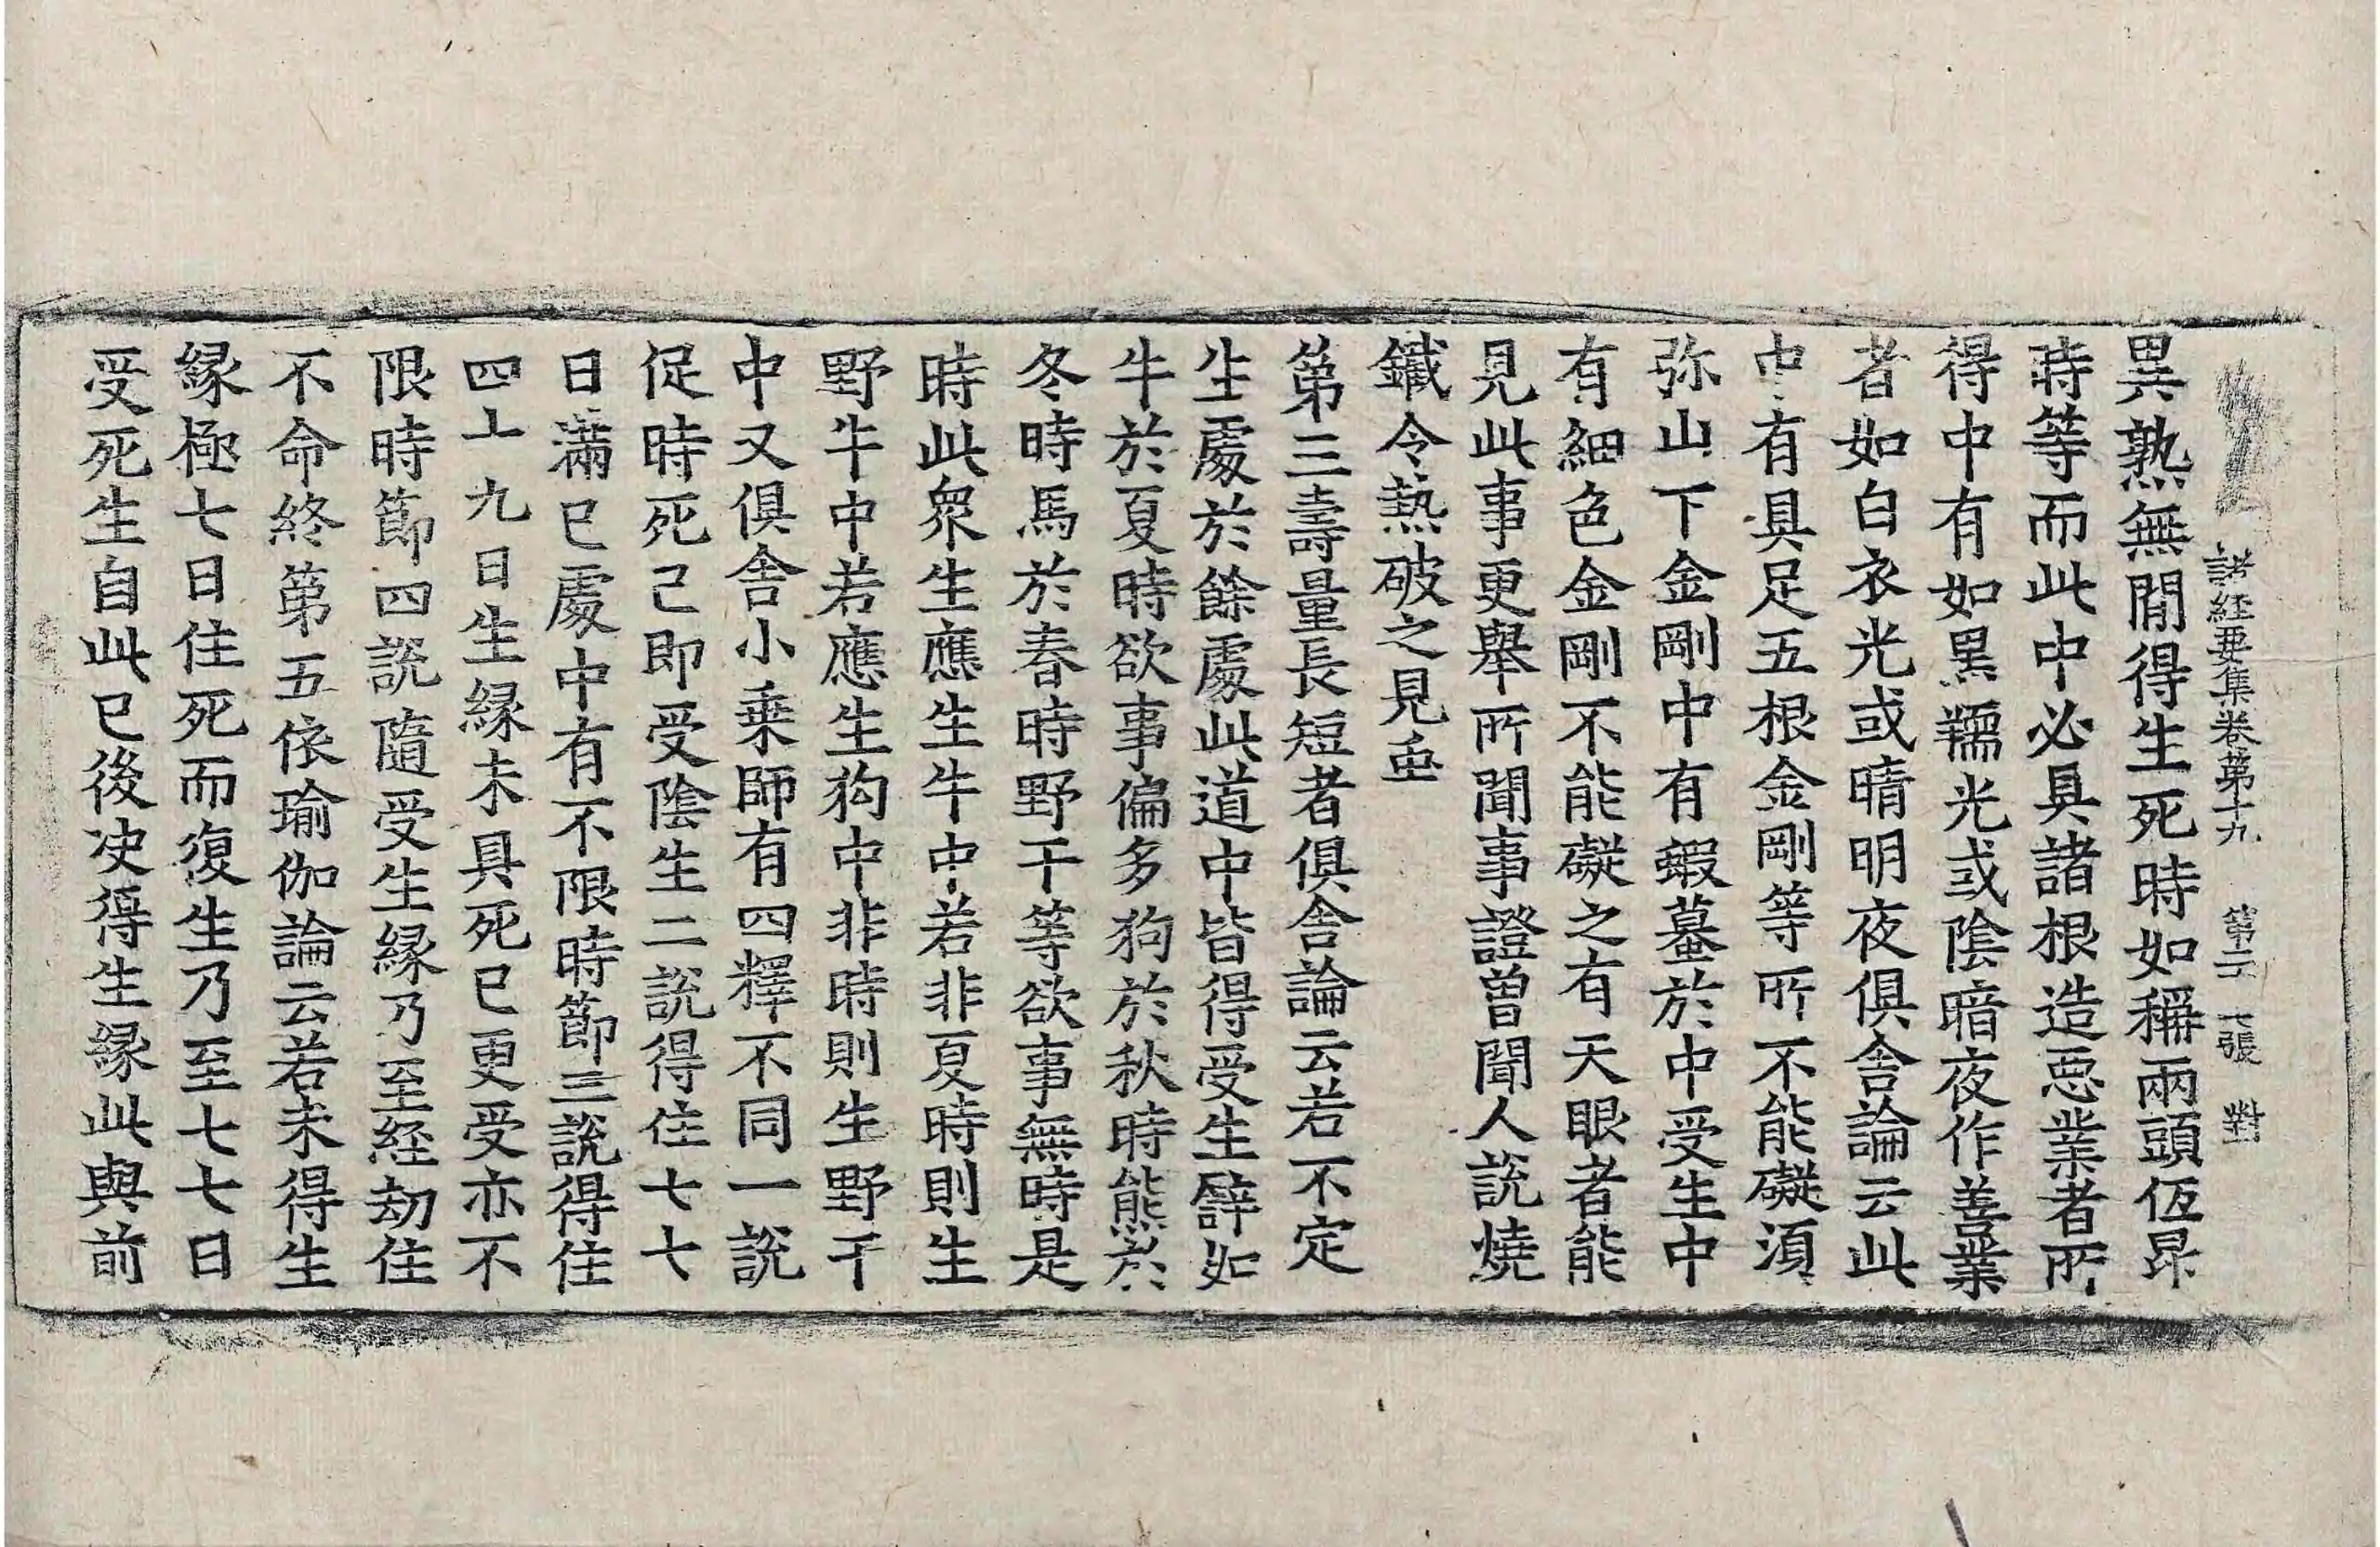 諸経要集卷第十九　第二十張　對
異熟無間得生死時如稱兩頭伍昂
時等而此中必具諸根造惡業者所
得中有如黑羺光或陰暗夜作善業
者如白衣光或晴明夜俱舍論云此
中有具足五根金剛等所不能礙湏
弥山下金剛中有蝦蟇於中受生中
有細色金剛不能礙之有天眼者能
見此事更舉所聞事證曽聞人說燒
鐵令熱破之見䖝
第三壽量長短者俱舍論云若不定
生處於餘處此道中皆得受生譬如
牛於夏時欲事偏多狗於秋時熊於
冬時馬於春時野干等欲事無時是
時此衆生應生牛中若非夏時則生
野牛中若應生狗中非時則生野干
中又俱舍小乗師有四釋不同一說
促時死己即受陰生二說得住七七
日滿已處中有不限時節三說得住
四十九日生縁未具死已更受亦不
限時節四說隨受生縁乃至経劫住
不命終第五依瑜伽論云若未得生
縁極七日住死而復生乃至七七日
受死生自此已後决得生縁此與前